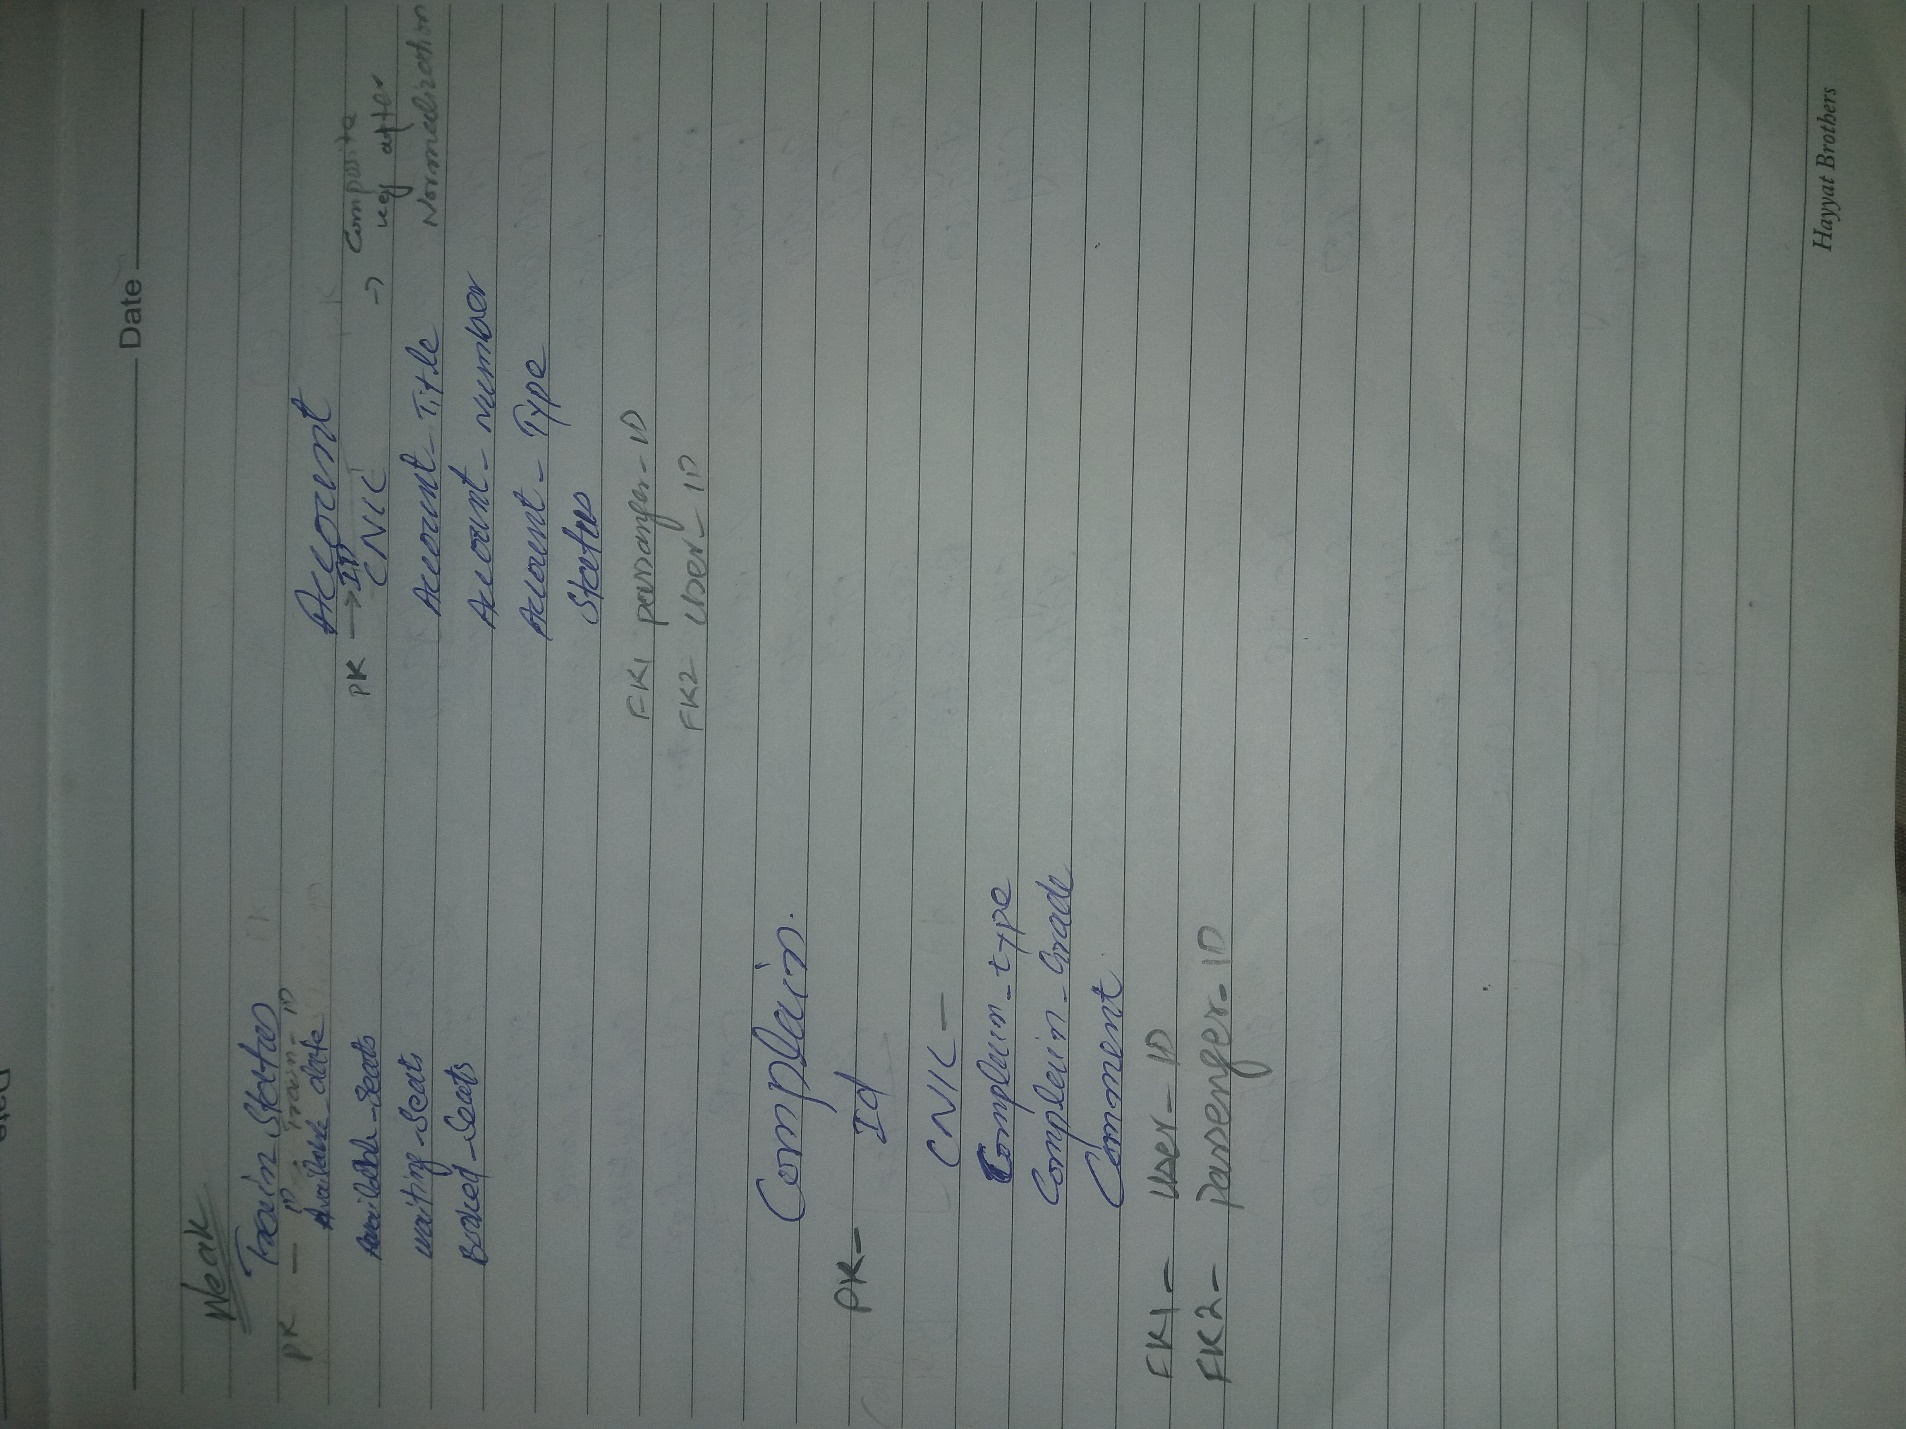 Date
Weak
Train Status
PK — ID, Train-ID
Available date
Available-Seats
waiting-Seats
Booked-Seats
Account
PK → ID
CNIC → Composite key after Normalization
Account-Title
Account-number
Account-Type
Status
FK1 passanger-ID
FK2 User-ID
Complain.
PK- Id
CNIC -
Complain-type
Complein-Grade
Comment
FK1- User-ID
FK2- Passenger-ID
Hayyat Brothers